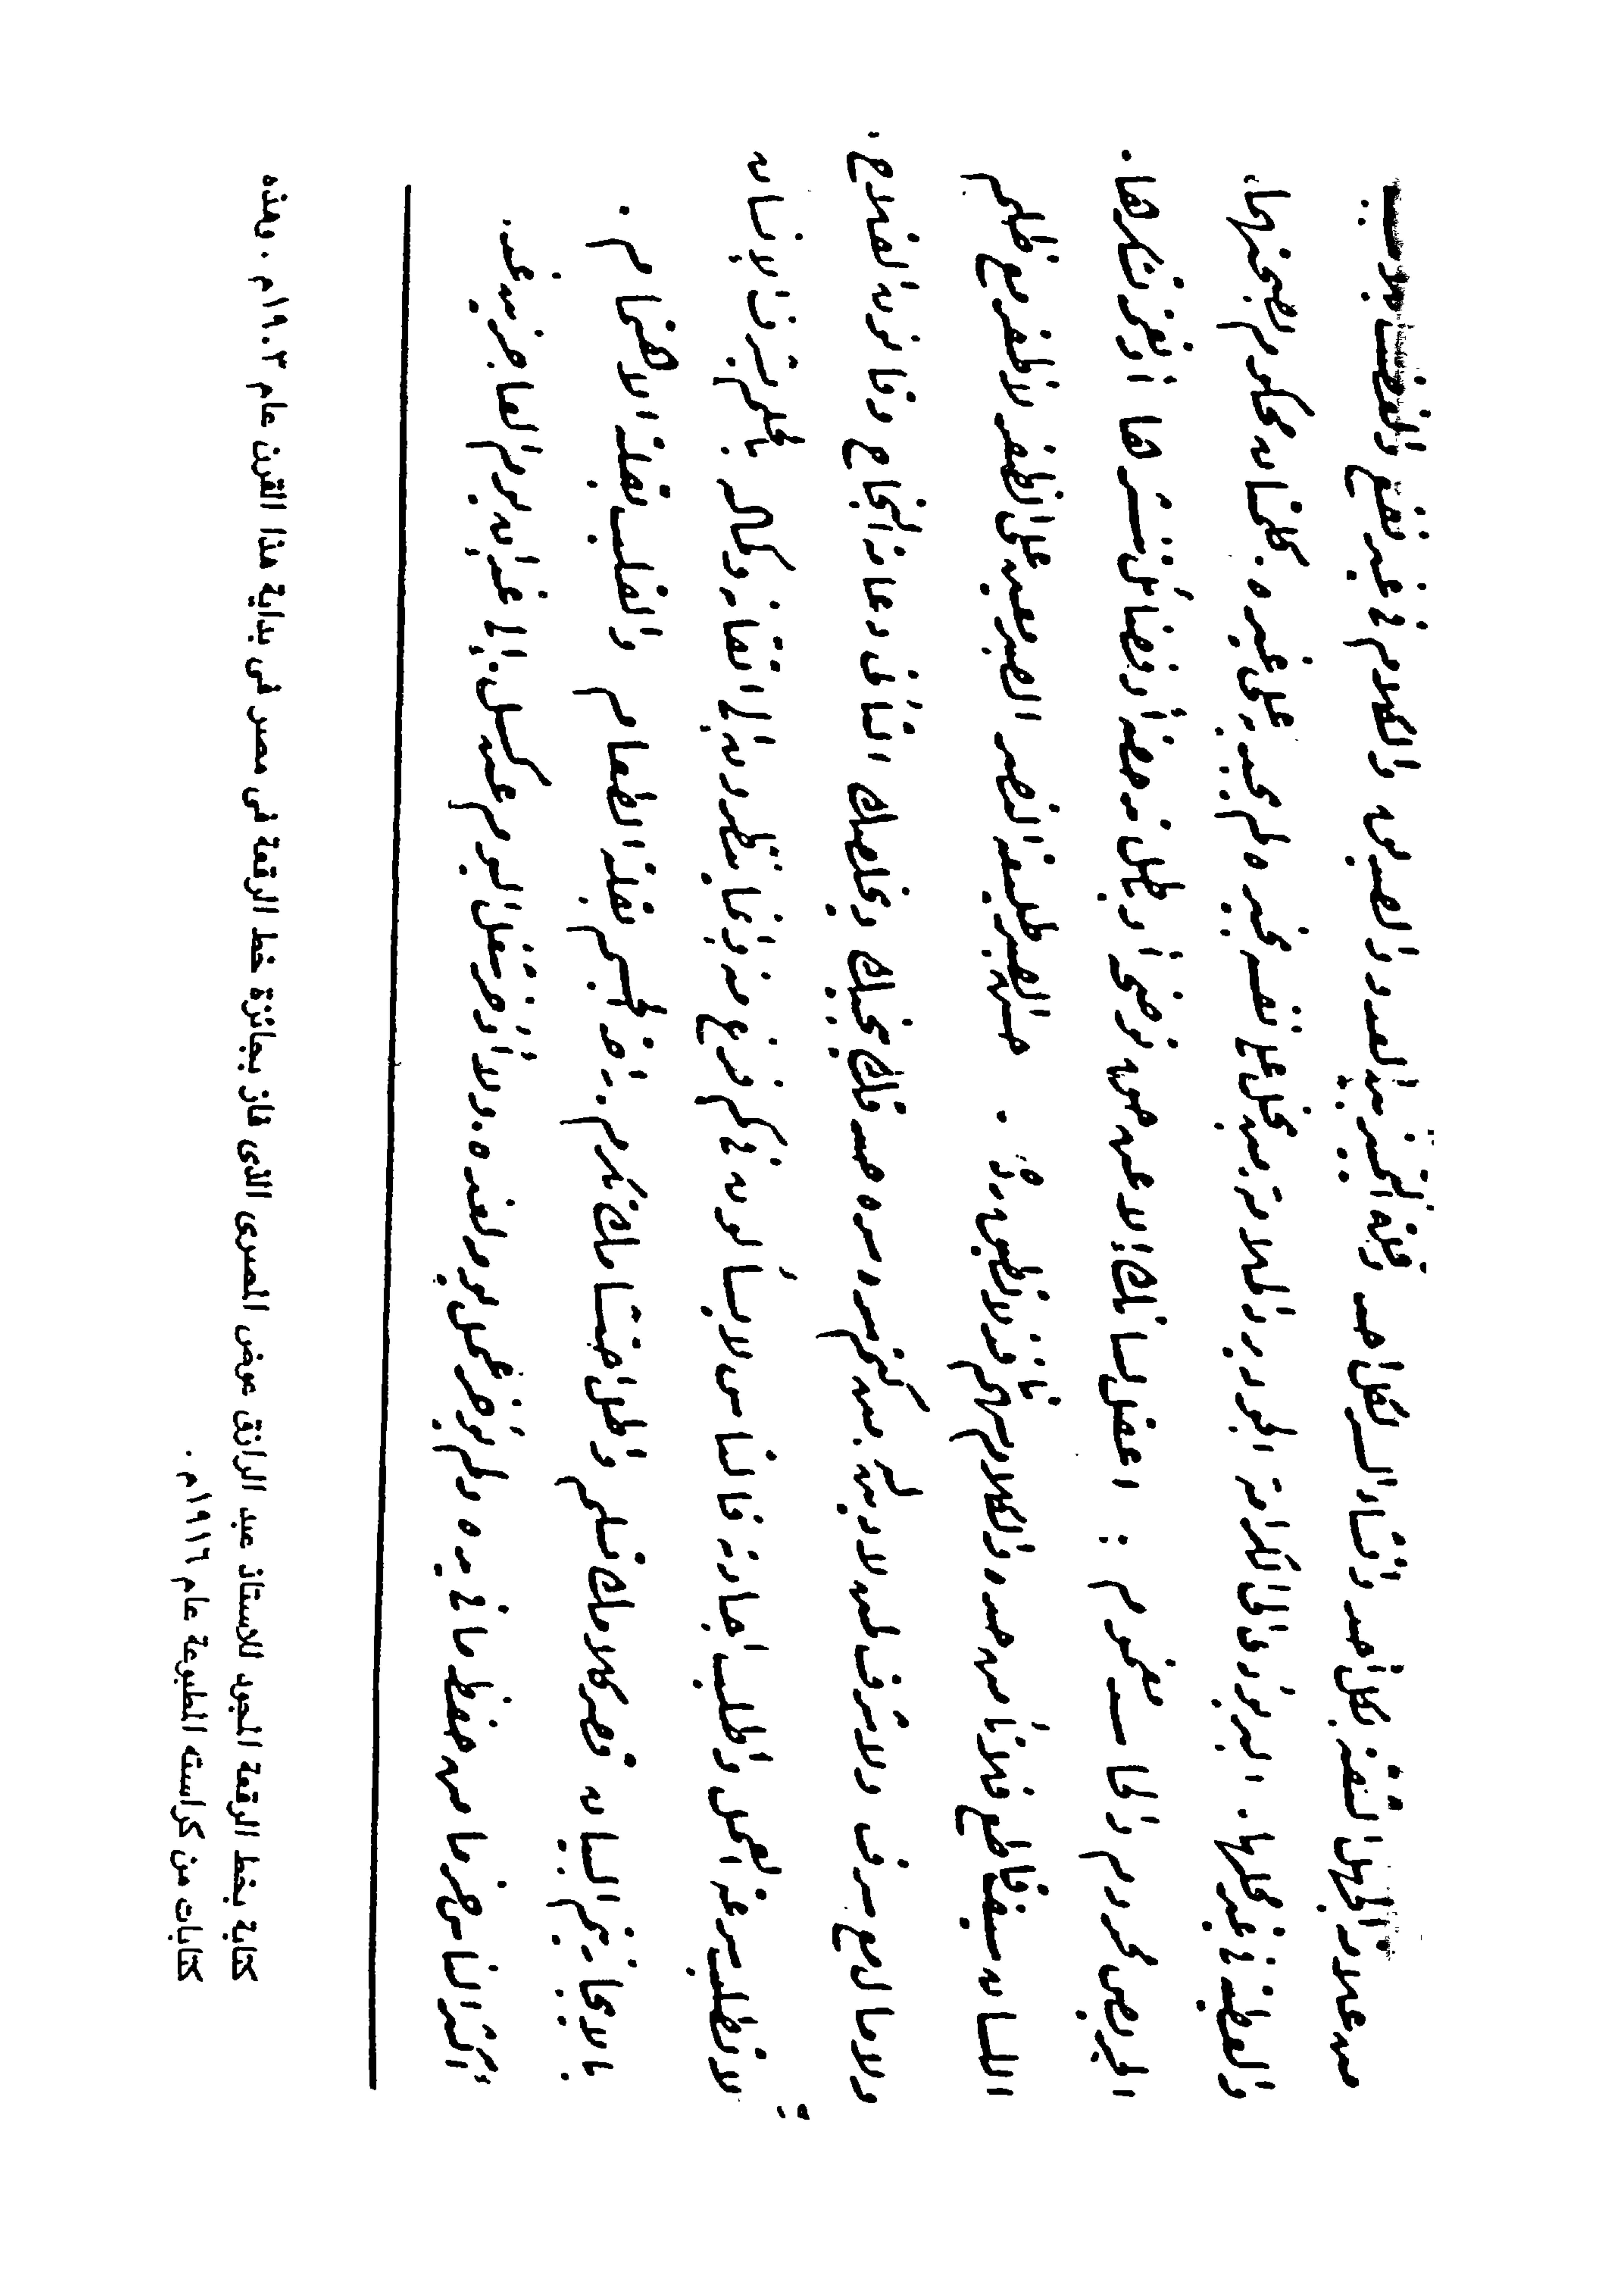 من علامة الجهل الثقة بكل أحد وافشاء السر لكل أحد وقلة التمييز بين العدو والصديق والكلام في غير نفع والغضب بلا سبب
والعطية في غير محلها. البر يؤدي الى الكرامة الجود يرد الملامة من بخل على نفسه بخيره لم يجد به على غيره. كلمتان محكوم بصحتهما.
الحريص محروم والحاسد مغموم : اعقل لسانك إلا عن حق توضحه أو باطل تدحضه أو فضائل تنشرها أو نعمة تشكرها.
اللسان سيف قاطع فلا تأمن حده والكلام سهم نافذ لا تطيق رده. حسن الصبر طليعة النصر الصبر معين على الظفر لا ظفر مع ظلم
ولا صالح مع سرف ولا شرف لمن لا دين له من كتم سره حسد فلك يحبك ويخلصك التأني دعامة النجاح وقانون الفلاح.
لا تطلب سرعة العمل واطلب اجادته فالناس لا يسألون في كم فرغ منه وإنما ينظرون إلى اتقانه وكماله بالحلم يشرف الإنسان
بالايجاز يتم البيان قصر كلامك تسلم وأطل احتشامك تكرم. راحة الجسم بقلة الطعام والقلب بقلة الاهتمام.
أكثر الناس حزما من حفظ ما في يده ولم يؤخر عمل يومه لغده. ولا تؤخر شغل اليوم عن كسل. إلى غد إن يوم العاجزين غد.
كتابة بخط الرقعة المجود للاستاذ عبد الرازق عوض المصرى الذى فاز بجائزة خط الرقعة فى مصر فى بداية هذا القرن عام ١٩٠٣م . وهذه
كتابات من كراسته المطبوعة عام ١٩١٦م .